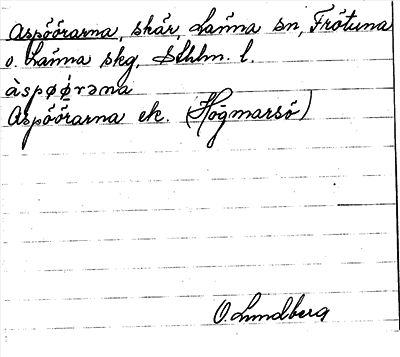 Aspöörarna, skär, Länna sn, Frötuna
o. Länna skg, Sthlm. l.
àspøø̀rəna
Aspöörarna ek. (Högmarsö)
O. Lundberg